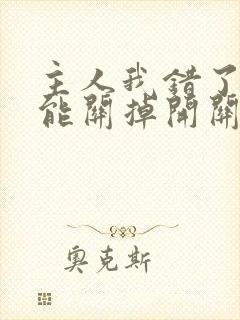 主人我错了
能關掉開關
奧克斯